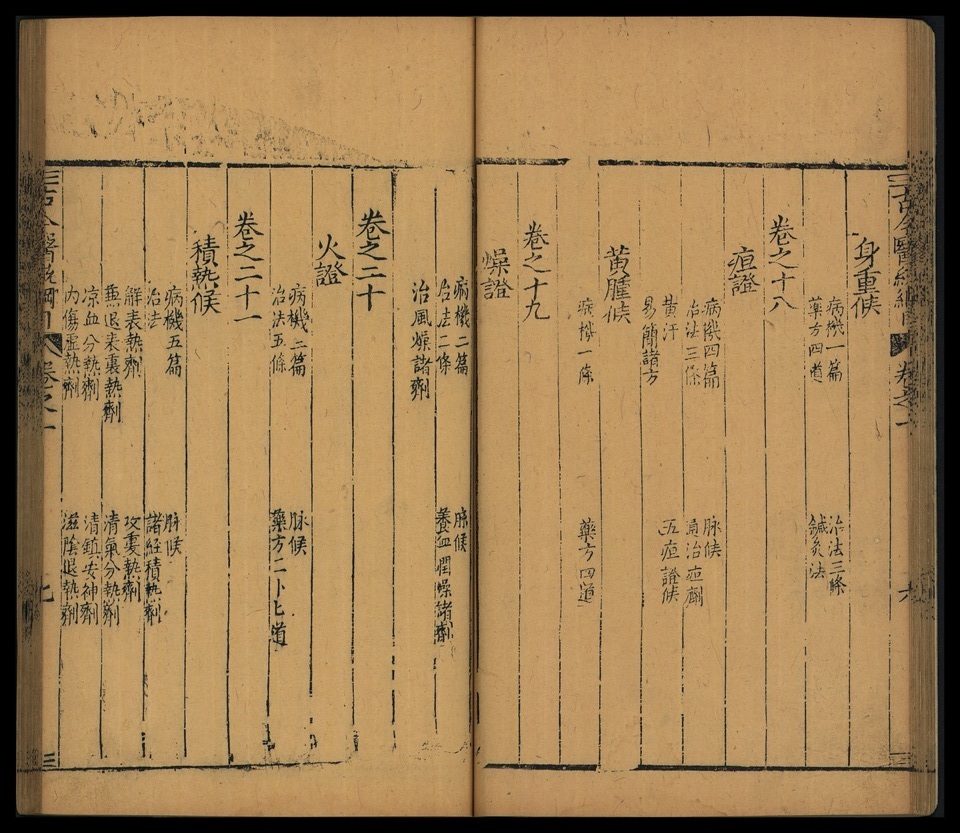 古今醫
卷之一
六
身重候
病機一篇
治法三條
藥方四道
鍼灸法
卷之十八
疸證
病機四篇
脉候
治法三條
通治疸劑
黃汗
五疸證候
易簡諸方
黃腫候
病機一條
藥方四道
卷之十九
燥證
病機二篇
脉候
治法二條
養血潤燥諸劑
治風燥諸劑
卷之二十
火證
病機二篇
脉候
治法五條
藥方二十七道
卷之二十一
積熱候
病機五篇
脉候
治法
諸經積熱劑
解表熱劑
攻裏熱劑
兼退表裏熱劑
清氣分熱劑
凉血分熱劑
清鎮安神劑
內傷虛熱劑
滋陰退熱劑
古今醫
卷之一
七